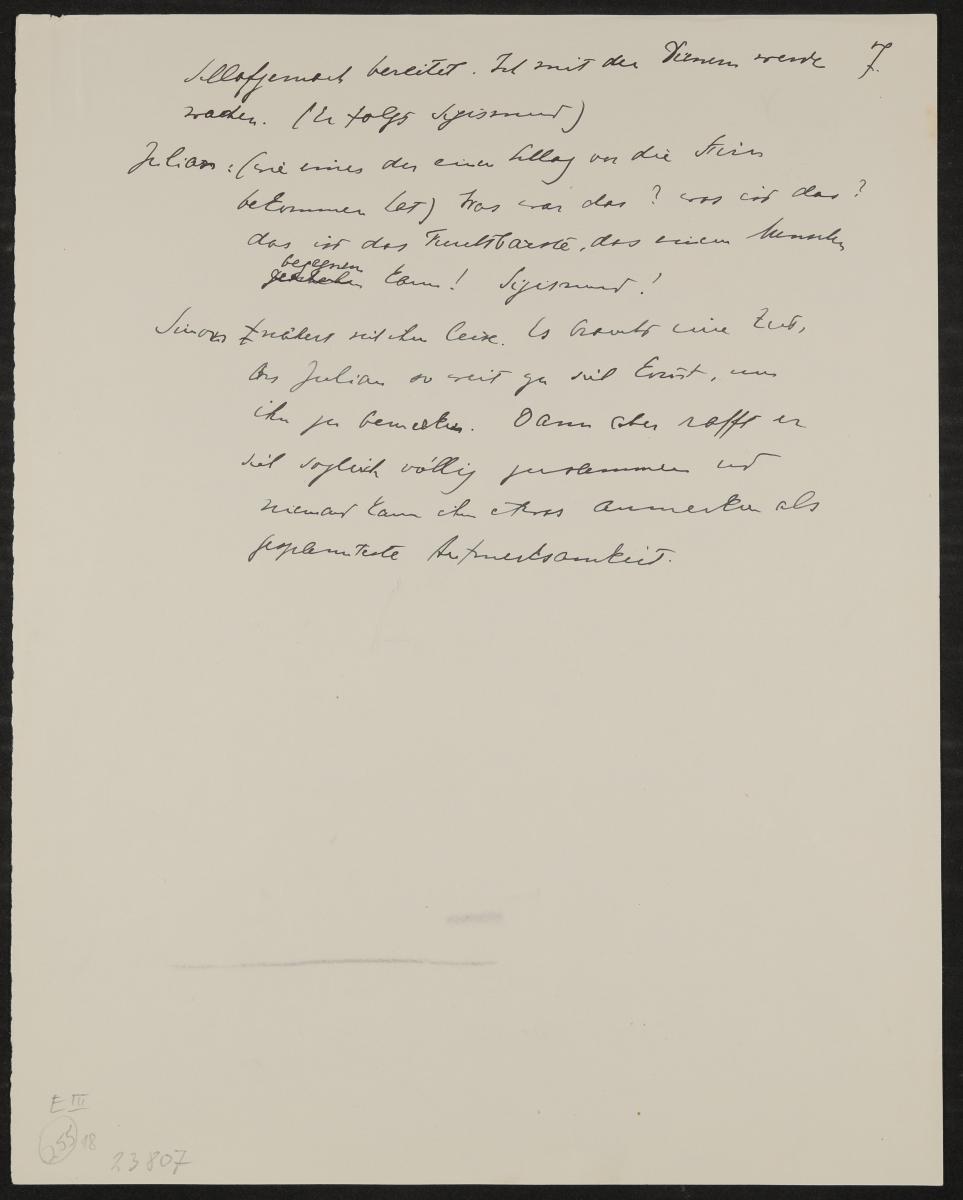 7.
Schlafgemach bereitet. Ich mit den Dienern werde
wachen. (Er folgt Sigismund)
Julian: (wie einer der einen Schlag vor die Stirn
bekommen hat) Was war das? was ist das?
das ist das Furchtbarste, das einem Menschen
begegnen
geschehen kann! Sigismund!
Simon nähert sich ihm leise. Es braucht eine Zeit,
bis Julian so weit zu sich kommt, um
ihn zu bemerken. Dann aber rafft er
sich sogleich völlig zusammen und
niemand kann ihm etwas anmerken als
gespannteste Aufmerksamkeit.
E III
255
18
23807